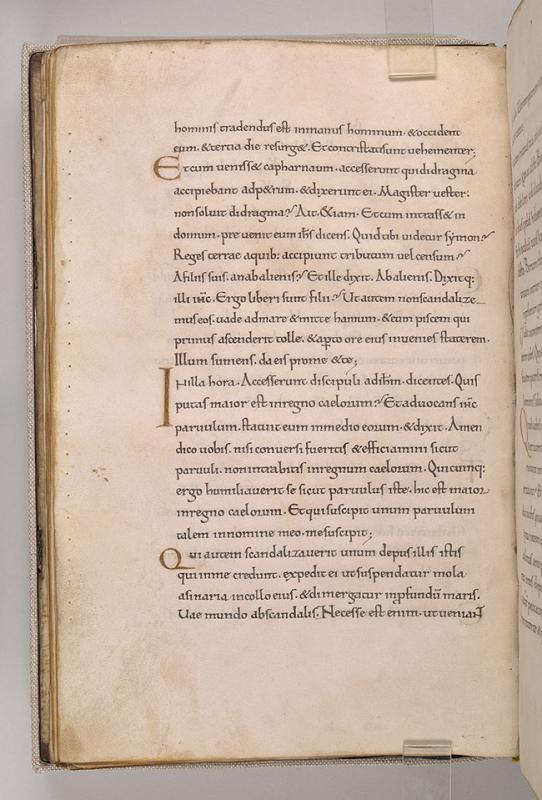 hominis tradendus est inmanus hominum. &occident
eum. &tertia die resurg&. Et contristatisunt uehementer;
Et cum uenisse& capharnaum. accesserunt qui didragma
accipiebant adp&rum. &dixerunt ei. Magister uester:
non soluit didragma? Ait. &iam. Et cum intrass& in
domum. preuenit eum ihs dicens. Quid tibi uidetur symon?
Reges terrae aquib: accipiunt tributum uel censum?
Afiliis suis. anabalienis? Et ille dixit. Abalienis. Dixitq:
illi Ergo liberi sunt filii? Ut autem nonscandalize
mus eos. uade admare &mitte hamum. &eum piscem qui
primus ascenderit tolle. &apto ore eius inuenies staterem.
Illum sumens. da eis prome &te;
Inilla hora. Accesserunt discipuli adihm. dicentes. Quis
putas maior est inregno caelorum? Et aduocans
paruulum. statuit eum inmedio eorum. &dixit. Amen
dico uobis. nisi conuersi fueritis &efficiamini sicut
paruuli. nonintrabitis inregnum caelorum. Quicumq:
ergo humiliauerit se sicut paruulus iste. hic est maior
inregno caelorum. Et qui susceperit unum paruulum
talem innomine meo. me suscipit;
Qui autem scandalizauerit unum depusillis istis
qui inme credunt. expedit ei ut suspendatur mola
asinaria incollo eius. &dimergatur inpfundū maris.
Uae mundo abscandalis. Necesse est enim. ut ueniant